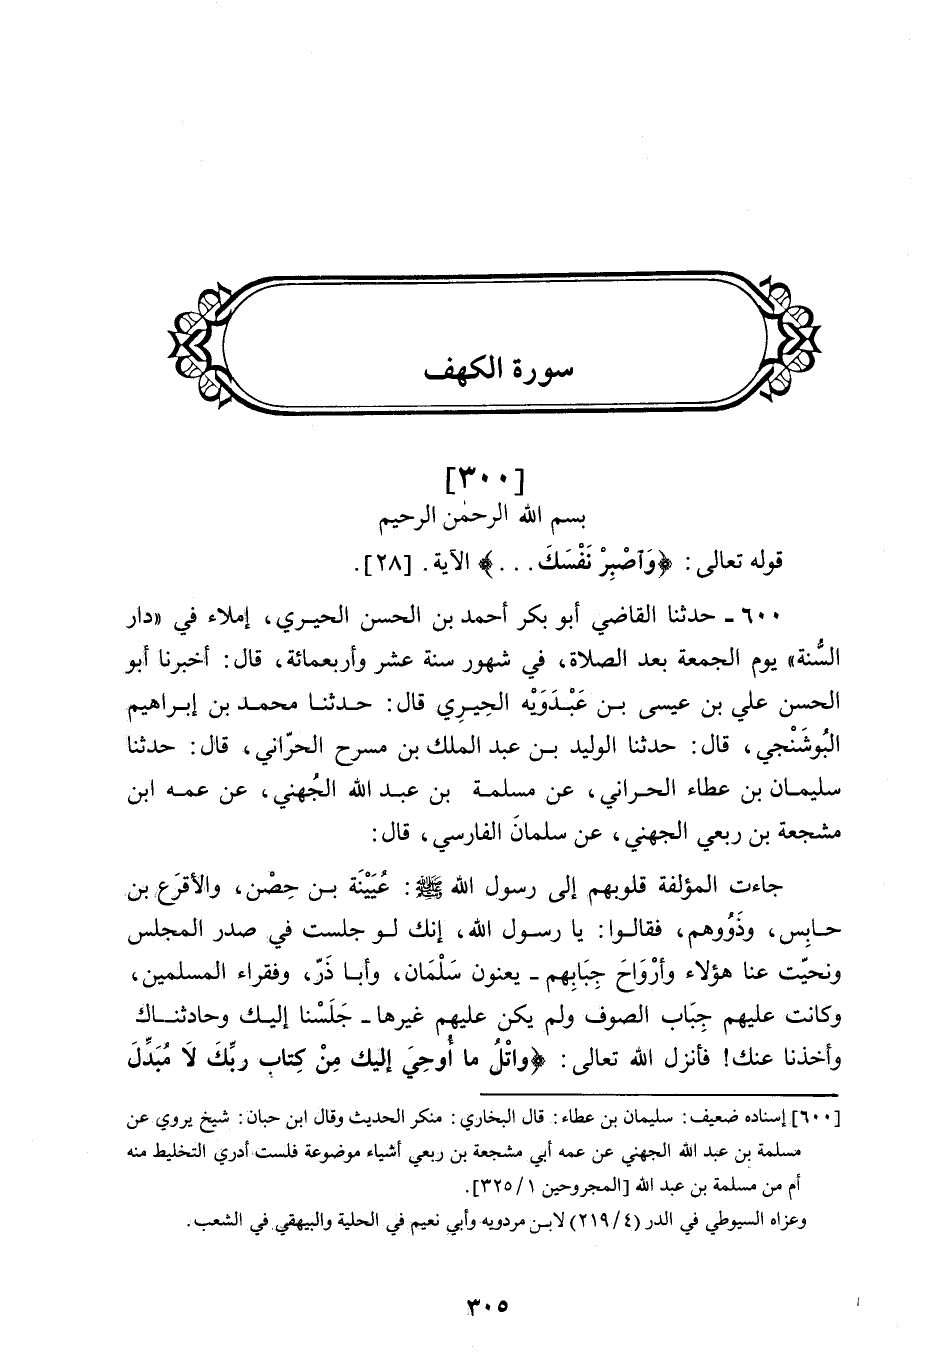 سورة الكهف
[٣٠٠]
بسم الله الرحمٰن الرحيم
قوله تعالى: ﴿وَٱصْبِرْ نَفْسَكَ...﴾ الآية. [٢٨].
٦٠٠ ـ حدثنا القاضي أبو بكر أحمد بن الحسن الحيري، إملاء في «دار
السُّنة» يوم الجمعة بعد الصلاة، في شهور سنة عشر وأربعمائة، قال: أخبرنا أبو
الحسن علي بن عيسى بن عَبْدَوَيْه الحِيرِي قال: حدثنا محمد بن إبراهيم
البُوشَنْجي، قال: حدثنا الوليد بن عبد الملك بن مسرح الحرّاني، قال: حدثنا
سليمان بن عطاء الحراني، عن مسلمة بن عبد الله الجُهني، عن عمه ابن
مشجعة بن ربعي الجهني، عن سلمانَ الفارسي، قال:
جاءت المؤلفة قلوبهم إلى رسول الله ﷺ: عُيَيْنَة بن حِصْن، والأقرَع بن
حابِس، وذَوُوهم، فقالوا: يا رسول الله، إنك لو جلست في صدر المجلس
ونحيّت عنا هؤلاء وأرْوَاحَ جِبَابِهم ـ يعنون سَلْمَان، وأبا ذَرّ، وفقراء المسلمين،
وكانت عليهم جِبَاب الصوف ولم يكن عليهم غيرها ـ جَلَسْنا إليك وحادثناك
وأخذنا عنك! فأنزل الله تعالى: ﴿واتْلُ ما أُوحِيَ إليك مِنْ كِتابِ ربِّكَ لَا مُبَدِّلَ
[٦٠٠] إسناده ضعيف: سليمان بن عطاء: قال البخاري: منكر الحديث وقال ابن حبان: شيخ يروي عن
مسلمة بن عبد الله الجهني عن عمه أبي مشجعة بن ربعي أشياء موضوعة فلست أدري التخليط منه
أم من مسلمة بن عبد الله [المجروحين ١/٣٢٥].
وعزاه السيوطي في الدر (٤/٢١٩) لابن مردويه وأبي نعيم في الحلية والبيهقي في الشعب.
٣٠٥